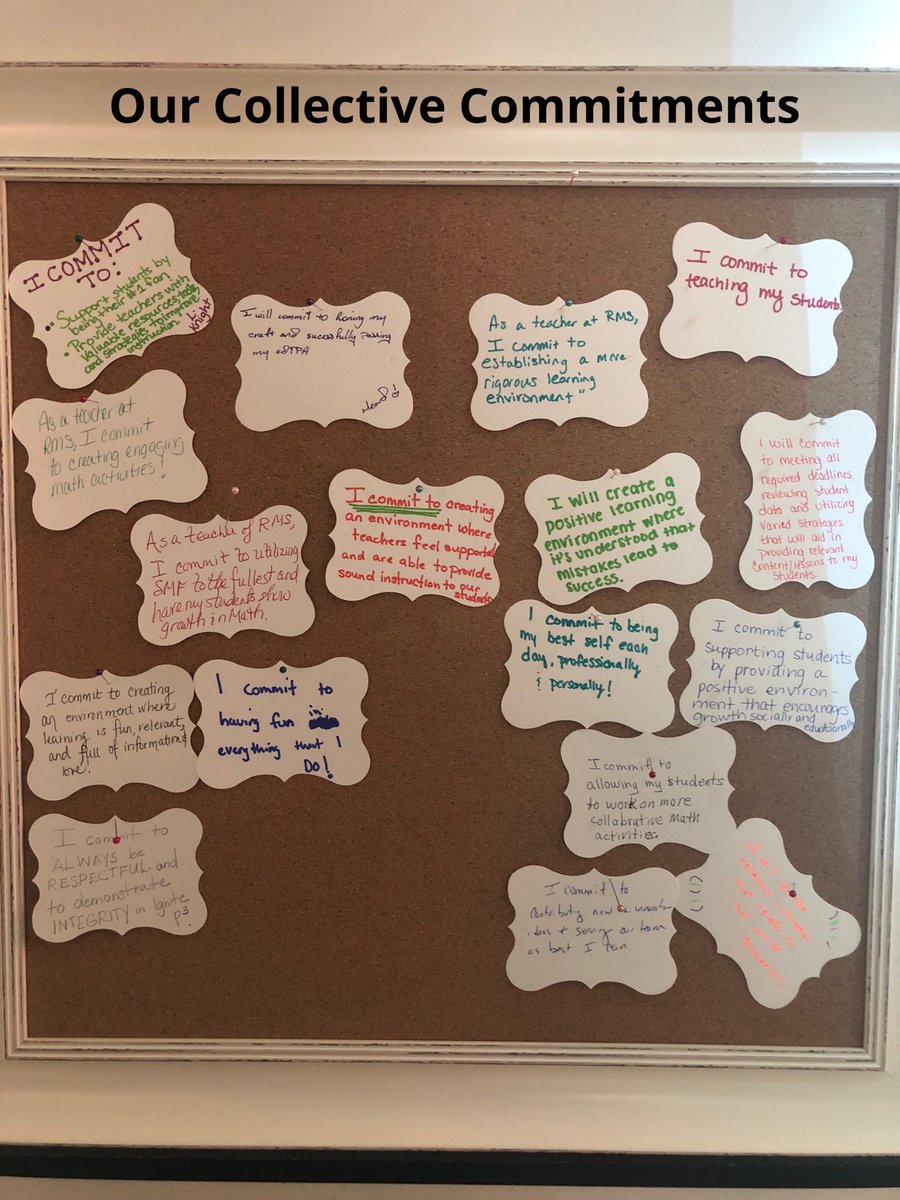 Our Collective Commitments
I COMMIT
TO:
• Support students by
being their #1 fan
• Provide teachers with
valuable resources, tools
and strategies to improve
instruction.
Knight
I will commit to honing my
craft and successfully passing
my edTPA
As a teacher at RMS,
I commit to
establishing a more
rigorous learning
environment"
I commit to
teaching my students.
As a teacher at
RMS, I commit
to creating engaging
math activities!
I will commit
to meeting all
required deadlines,
reviewing student
data and utilizing
varied strategies
that will aid in
providing relevant
content/lessons to my
students.
As a teacher of RMS,
I commit to utilizing
SMF to the fullest and
have my students show
growth in Math.
I commit to creating
an environment where
teachers feel supported
and are able to provide
sound instruction to our
students
I will create a
positive learning
environment where
it's understood that
mistakes lead to
success.
I commit to being
my best self each
day, professionally
& personally!
I commit to
supporting students
by providing a
positive environ-
ment that encourages
growth socially and
educationally
I commit to creating
an environment where
learning is fun, relevant,
and full of information &
love!
I commit to
having fun in
everything that I
Do!
I commit to
allowing my students
to work on more
collabrative Math
activities.
I commit to
ALWAYS be
RESPECTFUL and
to demonstrate
INTEGRITY in Ignite
p3
I commit to
contributing new
ideas & serving our team
as best I can
I will
that relate to
real world